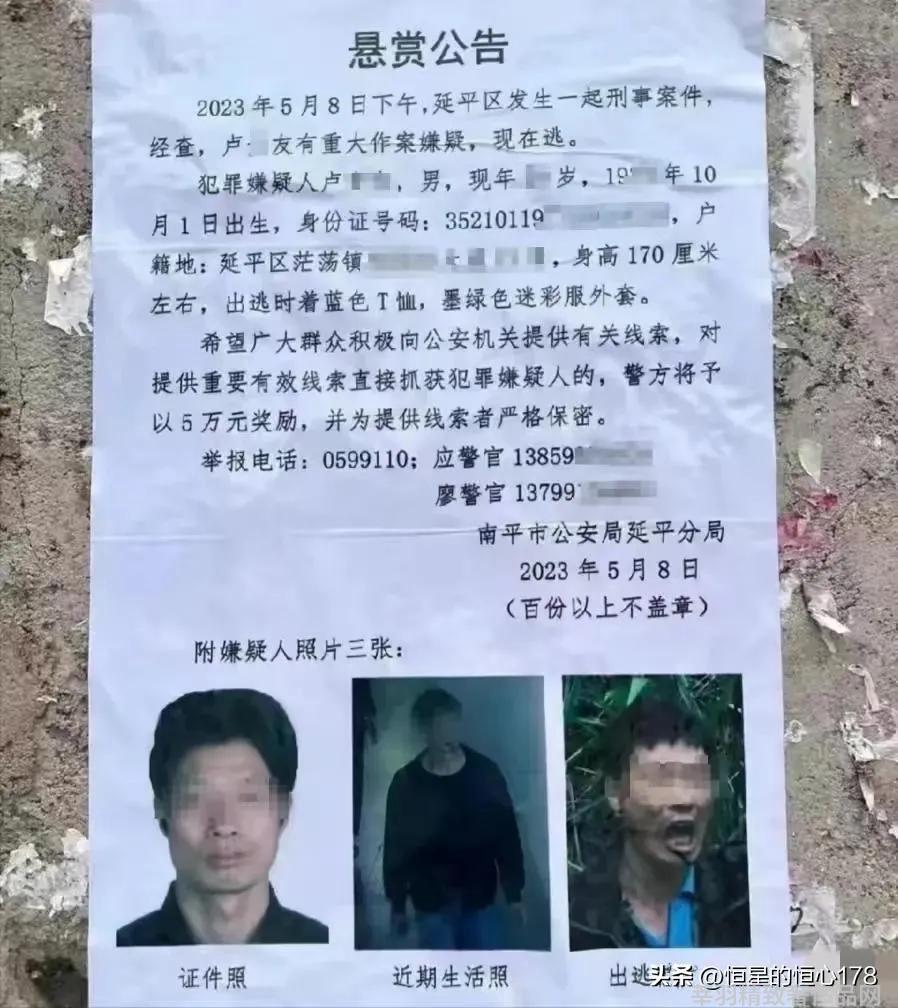 悬赏公告
2023年5月8日下午,延平区发生一起刑事案件,
经查，卢 友有重大作案嫌疑，现在逃。
犯罪嫌疑人卢 ，男，现年 岁，19 年10
月1日出生，身份证号码：35210119 ，户
籍地：延平区茫荡镇 ，身高170厘米
左右，出逃时着蓝色T恤，墨绿色迷彩服外套。
希望广大群众积极向公安机关提供有关线索，对
提供重要有效线索直接抓获犯罪嫌疑人的，警方将予
以5万元奖励，并为提供线索者严格保密。
举报电话：0599110；应警官13859
廖警官13799
南平市公安局延平分局
2023年5月8日
（百份以上不盖章）
附嫌疑人照片三张：
证件照
近期生活照
出逃
头条 @恒星的恒心178